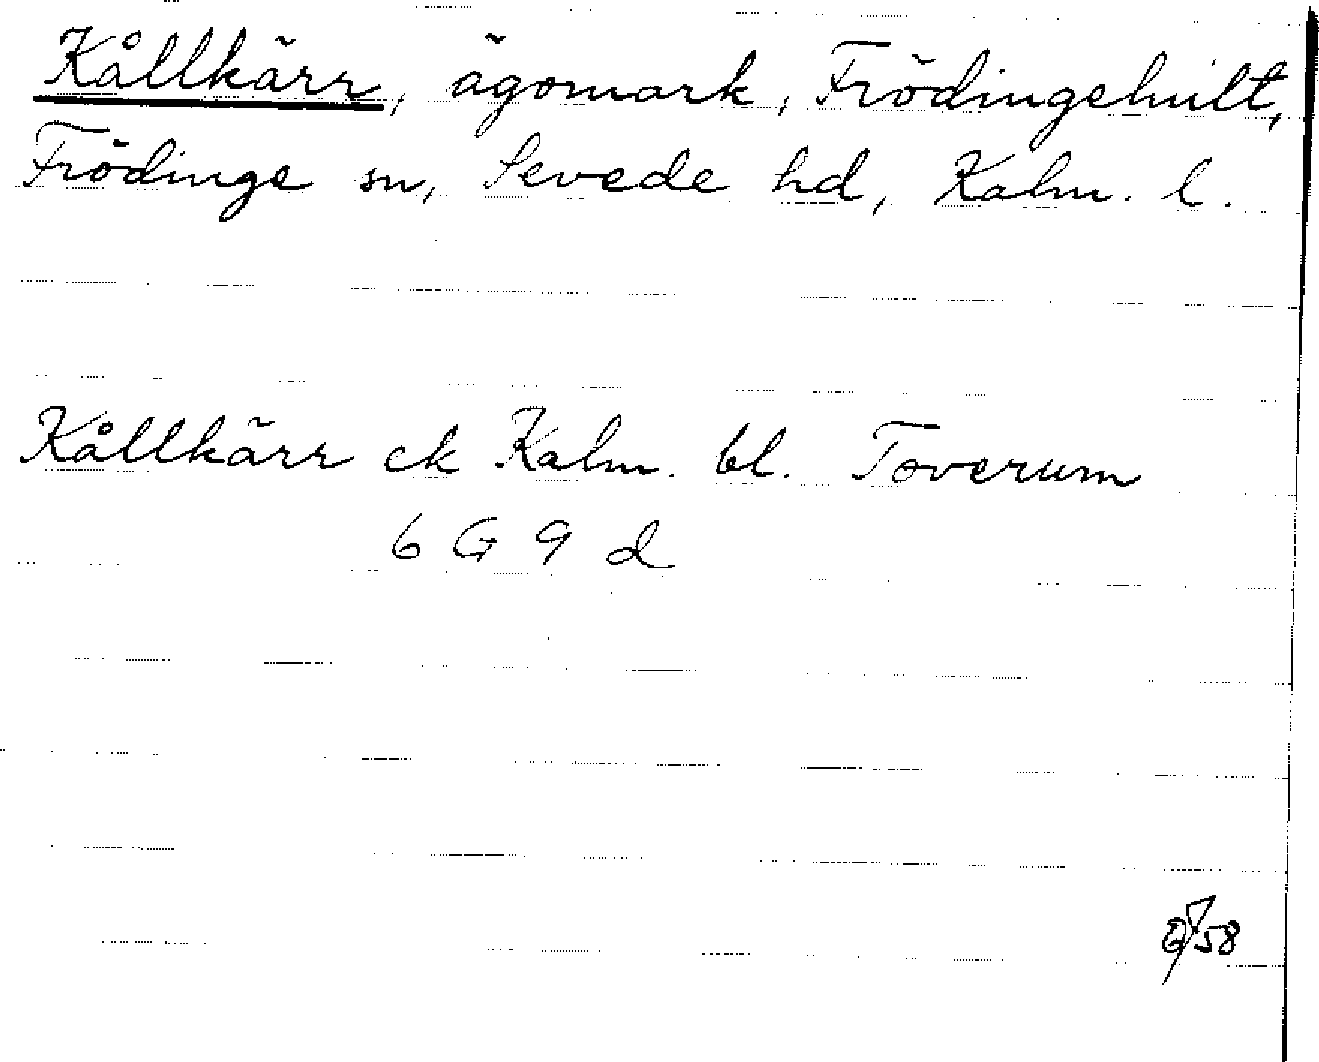 Kållkärr, ägomark, Frödingehult,
Frödinge sn, Sevede hd, Kalm. l.
Kållkärr ck Kalm. bl. Toverum
6 G 9 d